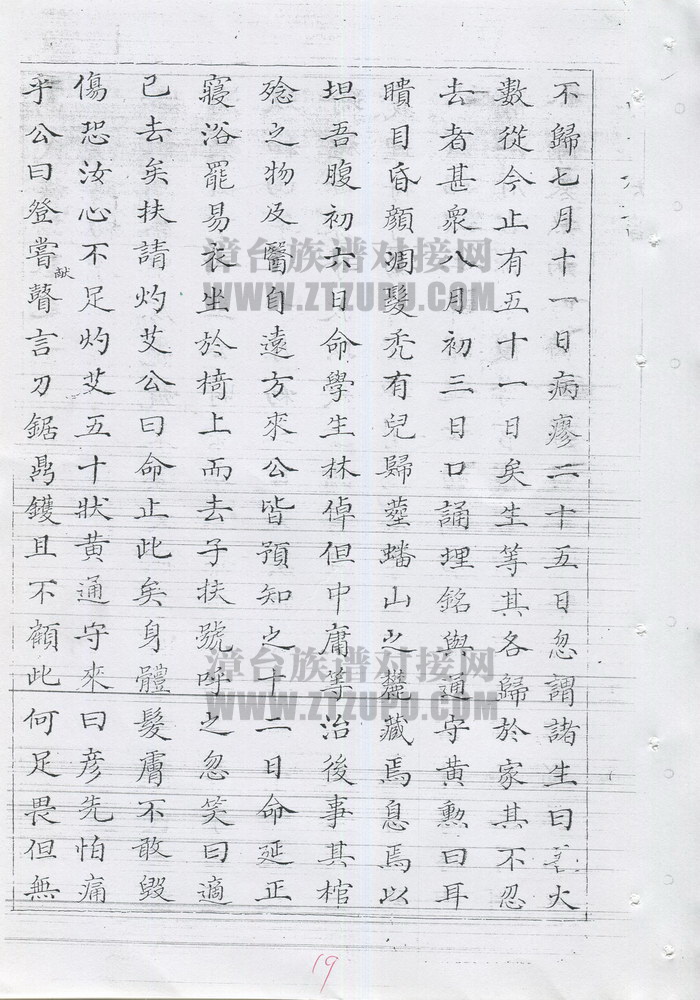 不歸七月十一日病瘳二十五日忽謂諸生曰火
數從今止有五十一日矣生等其各歸於家其不忍
去者甚衆八月初三日口誦埋銘與通守黃勲曰耳
瞶目昏顏凋髮禿有兒歸塟蟠山之麓藏焉息焉以
坦吾腹初六日命學生林倬但中庸等治後事其棺
殮之物及醫自遠方來公皆預知之十二日命延正
寢浴罷易衣坐於椅上而去子扶號呼之忽笑曰適
已去矣扶請灼艾公曰命止此矣身體髮膚不敢毀
傷恐汝心不足灼艾五十狀黃通守來曰彦先怕痛
乎公曰登嘗獻瞽言刀鋸鼎鑊且不顧此何足畏但無
漳台族谱对接网
WWW.ZTZUPU.COM
漳台族谱对接网
WWW.ZTZUPU.COM
19